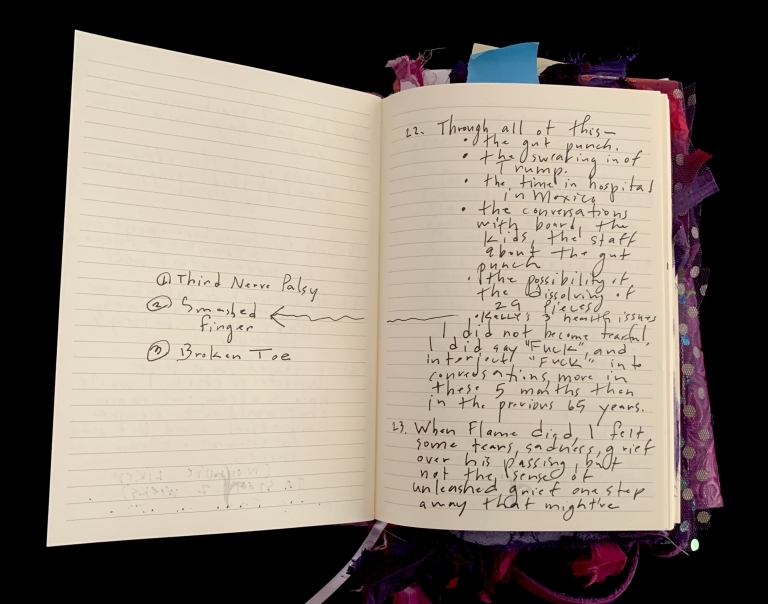 ① Third Nerve Palsy
② Smashed
finger
③ Broken Toe
22. Through all of this—
• the gut punch.
• the swearing in of
Trump.
• the time in hospital
in Mexico
• the conversations
with board, the
kids, the staff
about the gut
punch
• the possibility of
the dissolving of
29 pieces
• Kelly's 3 health issues
I did not become tearful,
I did say "Fuck", and
interject "Fuck" into
conversations, more in
these 5 months then
in the previous 65 years.
23. When Flame died, I felt
some tears, sadness, grief
over his passing, but
not the sense of
unleashed grief one step
away that might've